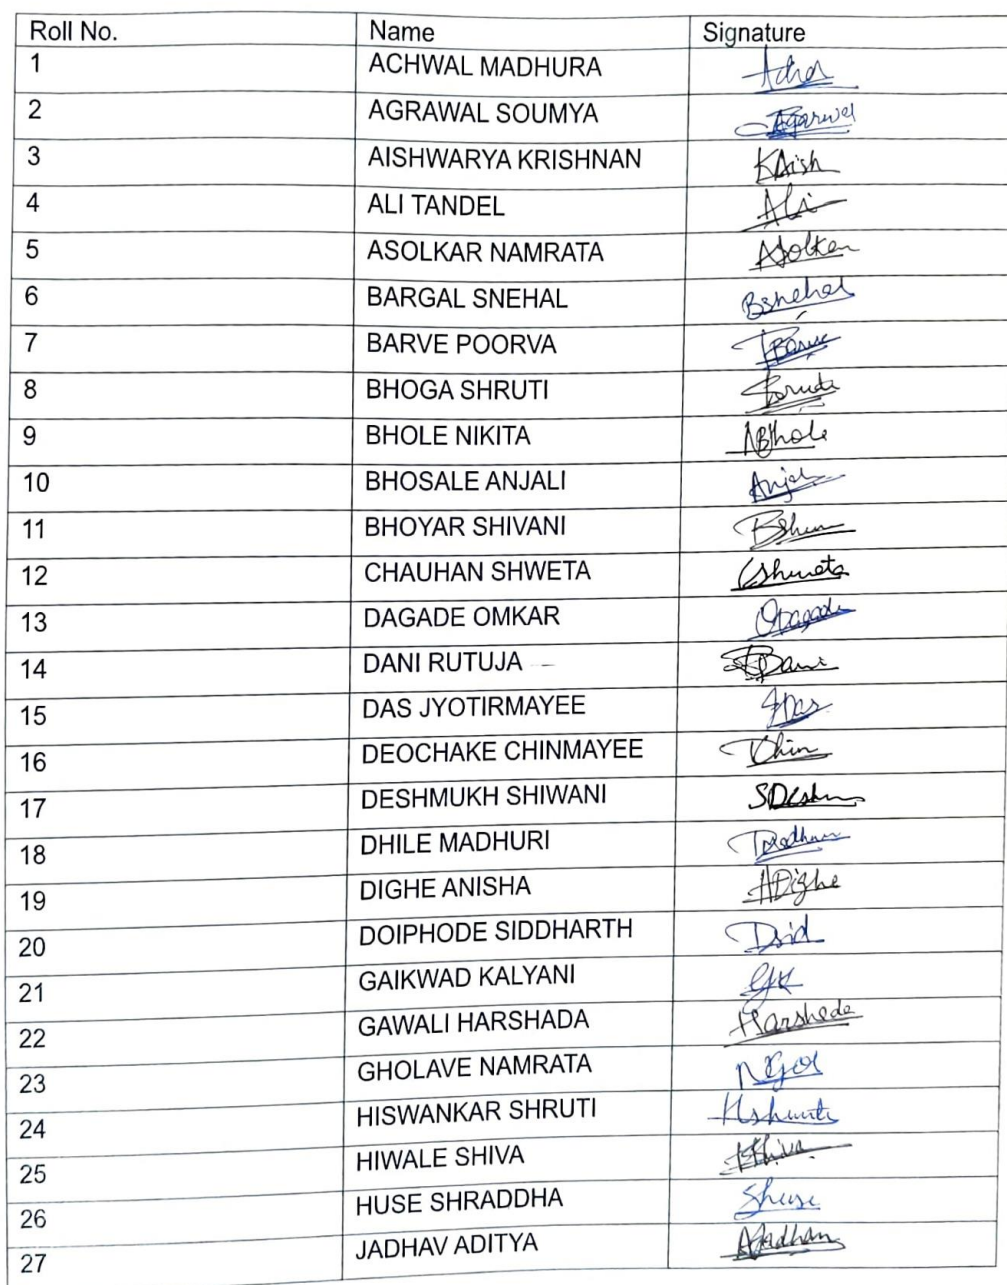 Roll No. Name Signature
1 ACHWAL MADHURA
2 AGRAWAL SOUMYA Agarwal
3 AISHWARYA KRISHNAN KAish
4 ALI TANDEL Ali
5 ASOLKAR NAMRATA
6 BARGAL SNEHAL BSnehal
7 BARVE POORVA
8 BHOGA SHRUTI
9 BHOLE NIKITA NBhole
10 BHOSALE ANJALI
11 BHOYAR SHIVANI
12 CHAUHAN SHWETA
13 DAGADE OMKAR ODagade
14 DANI RUTUJA
15 DAS JYOTIRMAYEE
16 DEOCHAKE CHINMAYEE
17 DESHMUKH SHIWANI
18 DHILE MADHURI
19 DIGHE ANISHA ADighe
20 DOIPHODE SIDDHARTH Dsid
21 GAIKWAD KALYANI GK
22 GAWALI HARSHADA
23 GHOLAVE NAMRATA
24 HISWANKAR SHRUTI
25 HIWALE SHIVA
26 HUSE SHRADDHA Shuse
27 JADHAV ADITYA